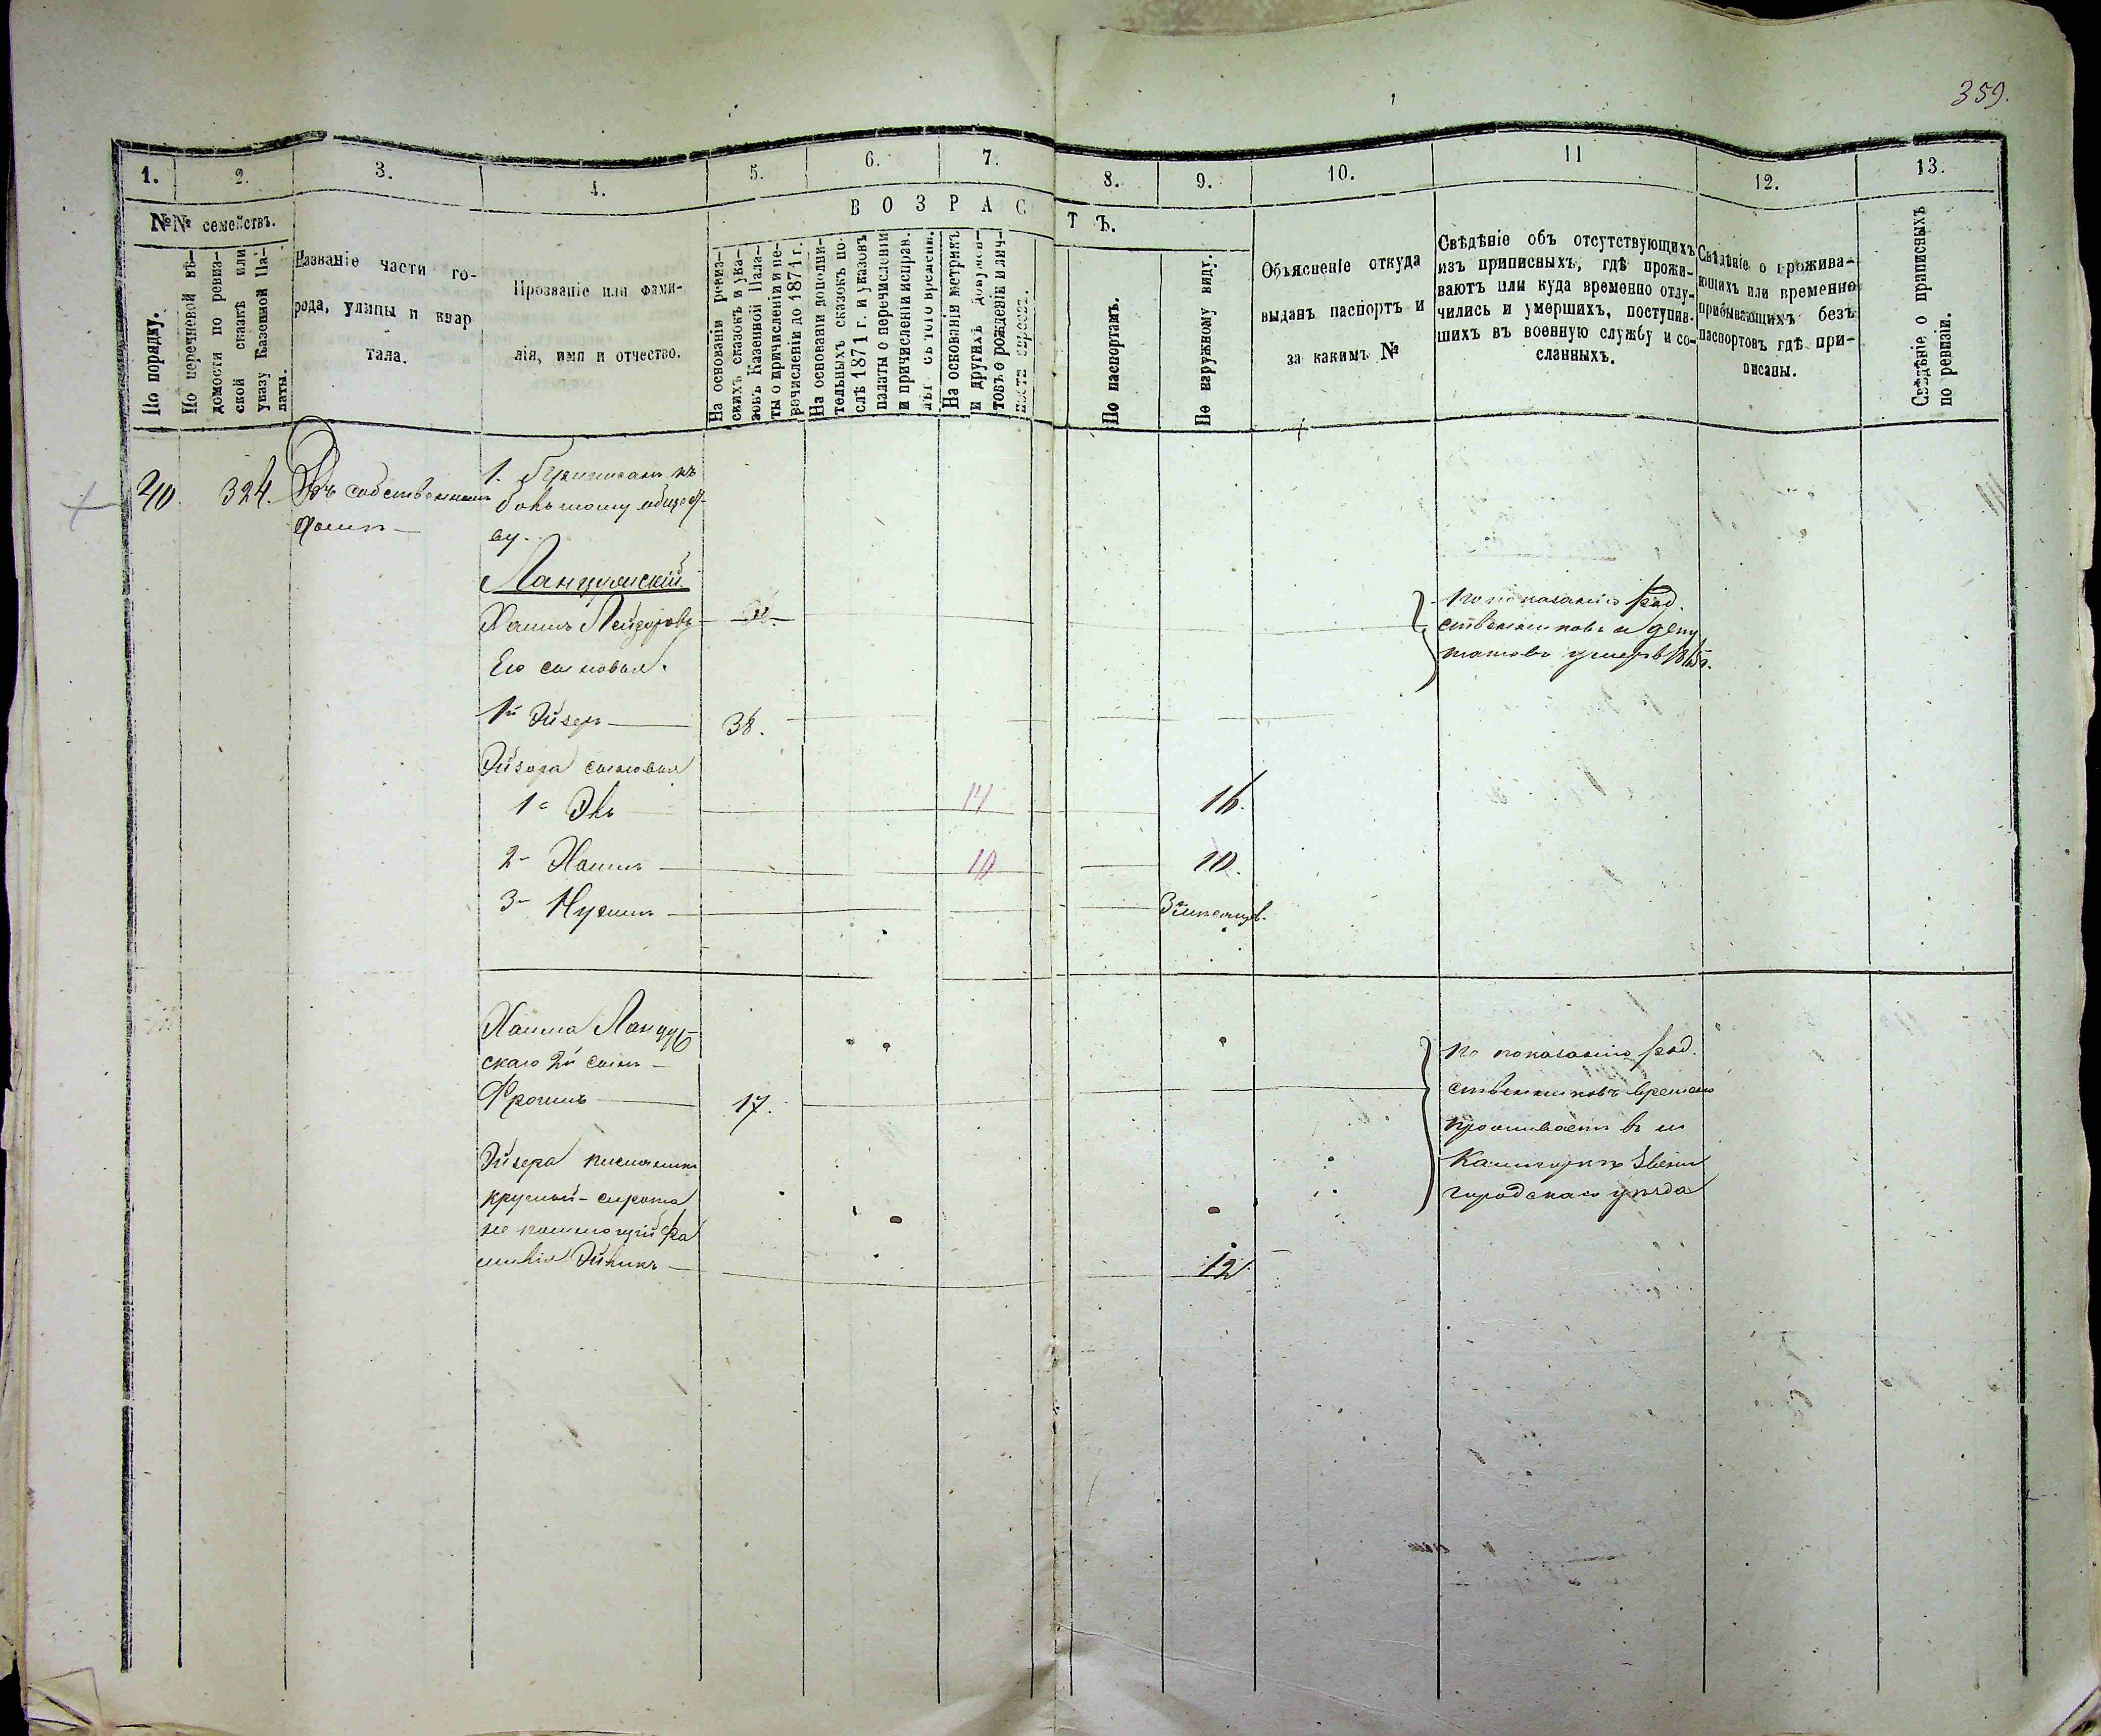 359.
1.
2.
3.
4.
5.
6.
7.
8.
9.
10.
11
12.
13.
№№ семействъ.
В О З Р А С Т Ъ.
По порядку.
По перечневой вѣ-
домости по ревиз-
ской сказкѣ или
указу Казенной Па-
латы.
Названіе части го-
рода, улицы и квар
тала.
Прозваніе или фами-
лія, имя и отчество.
На основаніи ревиз-
скихъ сказокъ и ука-
зовъ Казенной Пала-
ты о причисленіи и пе-
речисленіи до 1871 г.
На основаніи дополни-
тельныхъ сказокъ по-
слѣ 1871 г. и указовъ
палаты о перечисленіи
и причисленіи исправ.
лѣт съ того времени.
На основаніи метрикъ
и другихъ докумен-
товъ о рожденіе и лич-
ности
По паспортамъ.
По наружному виду.
Объясненіе откуда
выданъ паспортъ и
за какимъ №
Свѣдѣніе объ отсутствующихъ
изъ приписныхъ, гдѣ прожи-
ваютъ или куда временно отлу-
чились и умершихъ, поступив-
шихъ въ военную службу и со-
сланныхъ.
Свѣдѣніе о прожива-
ющихъ или временно
прибывающихъ безъ
паспортовъ гдѣ при-
писаны.
Свѣдѣніе о приписныхъ
по ревизіи.
40. 324. Въ собственномъ
домѣ
1. Приписанъ къ
обществ-
ву.
Хаимъ
По показанію род-
ственниковъ и депу
татовъ умеръ в
Его сыновья.
1й Эйзеръ 38.
Эйзера сыновья
1й Эль 14 16.
2й Хаимъ 10 10.
3й Нухимъ 3х мѣсяцев.
Хаима
скаго 2й сынъ
Фроимъ 17.
По показанію род-
ственниковъ временно
проживаетъ в м
Звени
городскаго уѣзда
Эйзера
круглый сирота
не помнющій фа
милія 12